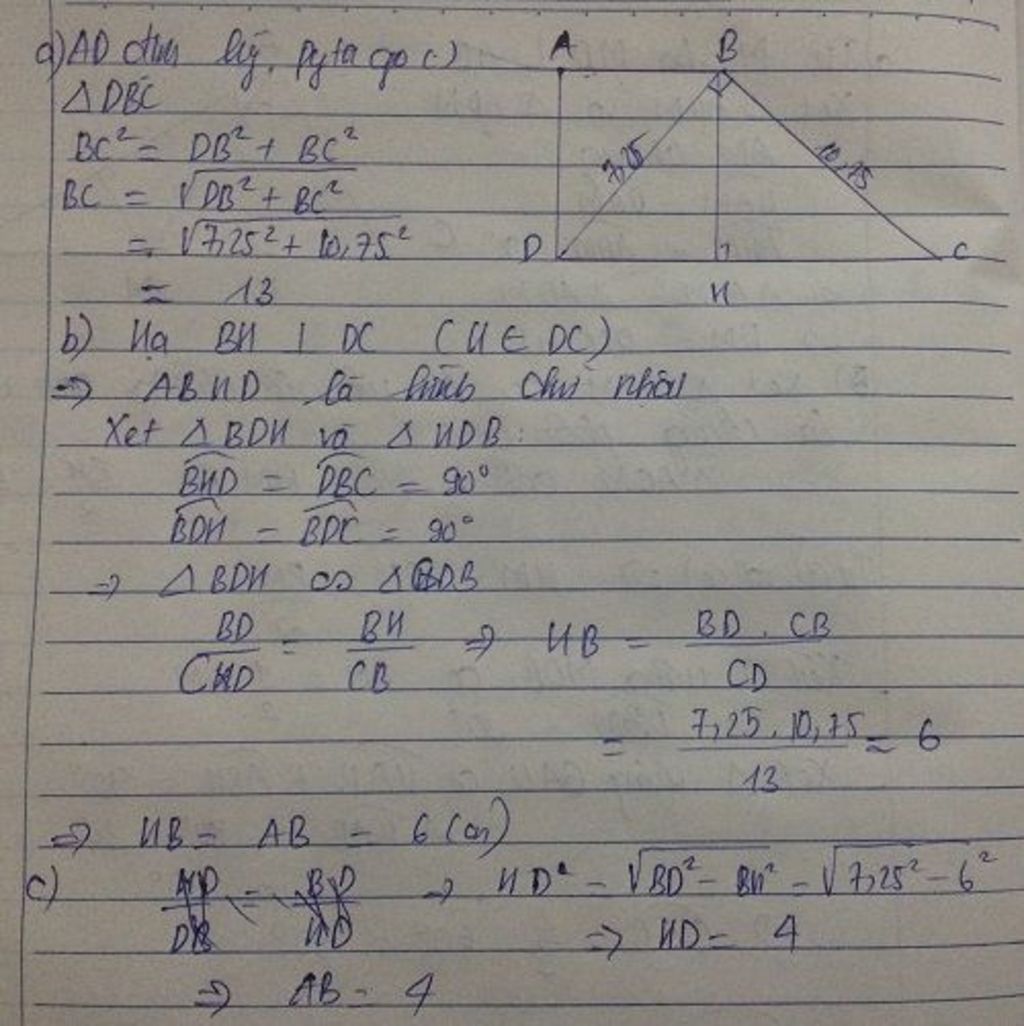 a) AD định lý Pytago c)
△DBC
BC² = DB² + BC²
BC = √DB² + BC²
= √7,25² + 10,75²
≈ 13
A B
7,25 10,75
D H C
b) Hạ BH ⊥ DC (H ∈ DC)
=> ABHD là hình chữ nhật
Xét △BDH và △HDB:
BHD = DBC = 90°
BDH = BDC = 90°
=> △BDH ∽ △CDB
BD/CD = BH/CB => HB = BD . CB/CD
= 7,25 . 10,75/13 ≈ 6
=> HB = AB = 6 (cm)
c) HD² = √BD² - BH² = √7,25² - 6²
=> HD = 4
=> AB = 4